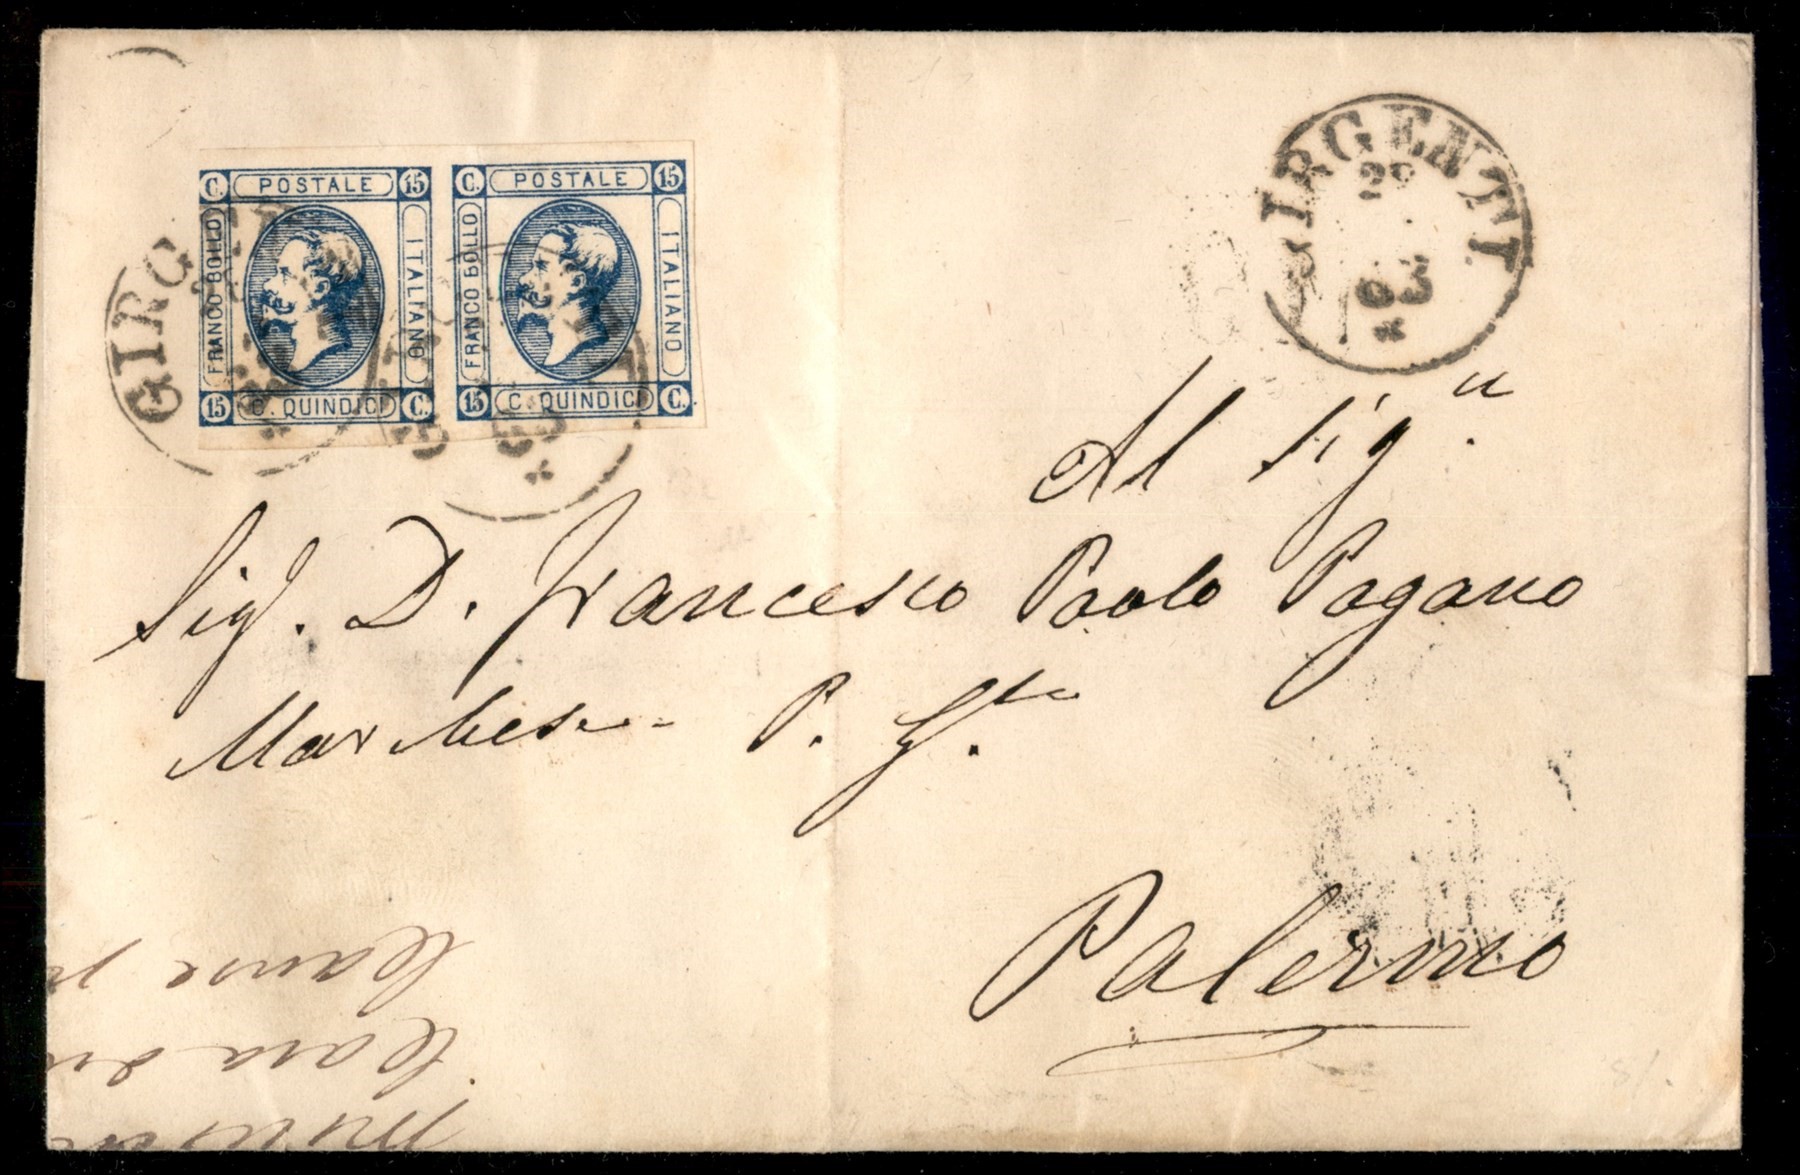 C. POSTALE 15
FRANCO BOLLO
ITALIANO
15 C. QUINDICI C.
C. POSTALE 15
FRANCO BOLLO
ITALIANO
15 C. QUINDICI C.
GIRG
63
GIRGENTI
63
Al Sig.r
Sig. D. Francesco Paolo Pagano
Marchese P. G.
Palermo